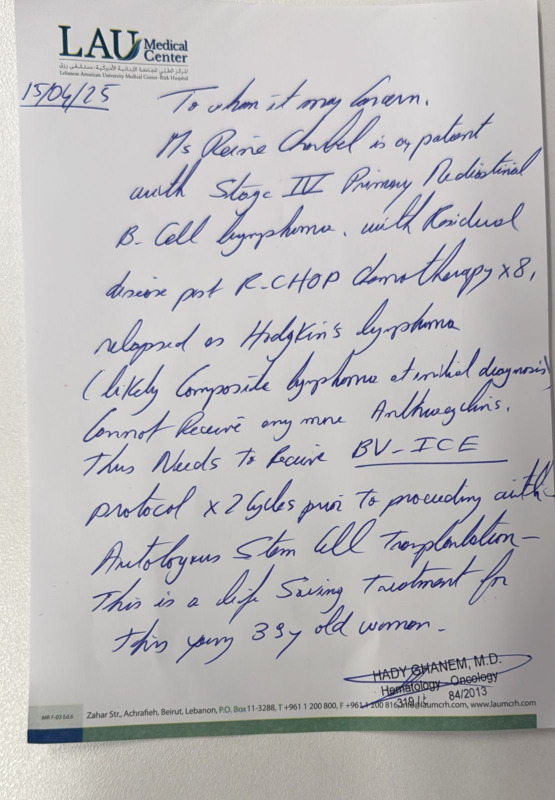 LAU Medical
Center
Lebanese American University Medical Center-Rizk Hospital
15/04/25
To whom it may concern.
Ms Reine Charbel is a patient
with Stage IV Primary Mediastinal
B-Cell lymphoma, with Residual
disease post R-CHOP chemotherapy x8,
relapsed as Hodgkin's lymphoma
(likely Composite lymphoma at initial diagnosis)
Cannot Receive any more Anthracyclins.
Thus Needs to Receive BV-ICE
protocol x 2 Cycles prior to proceeding with
Autologous Stem Cell Transplantation-
This is a life Saving Treatment for
this young 39y old woman-
HADY GHANEM, M.D.
Hematology - Oncology
84/2013
MR F-03 Ed.6
Zahar Str., Achrafieh, Beirut, Lebanon, P.O. Box 11-3288, T +961 1 200 800, F +961 1 200 816, www.laumcrh.com